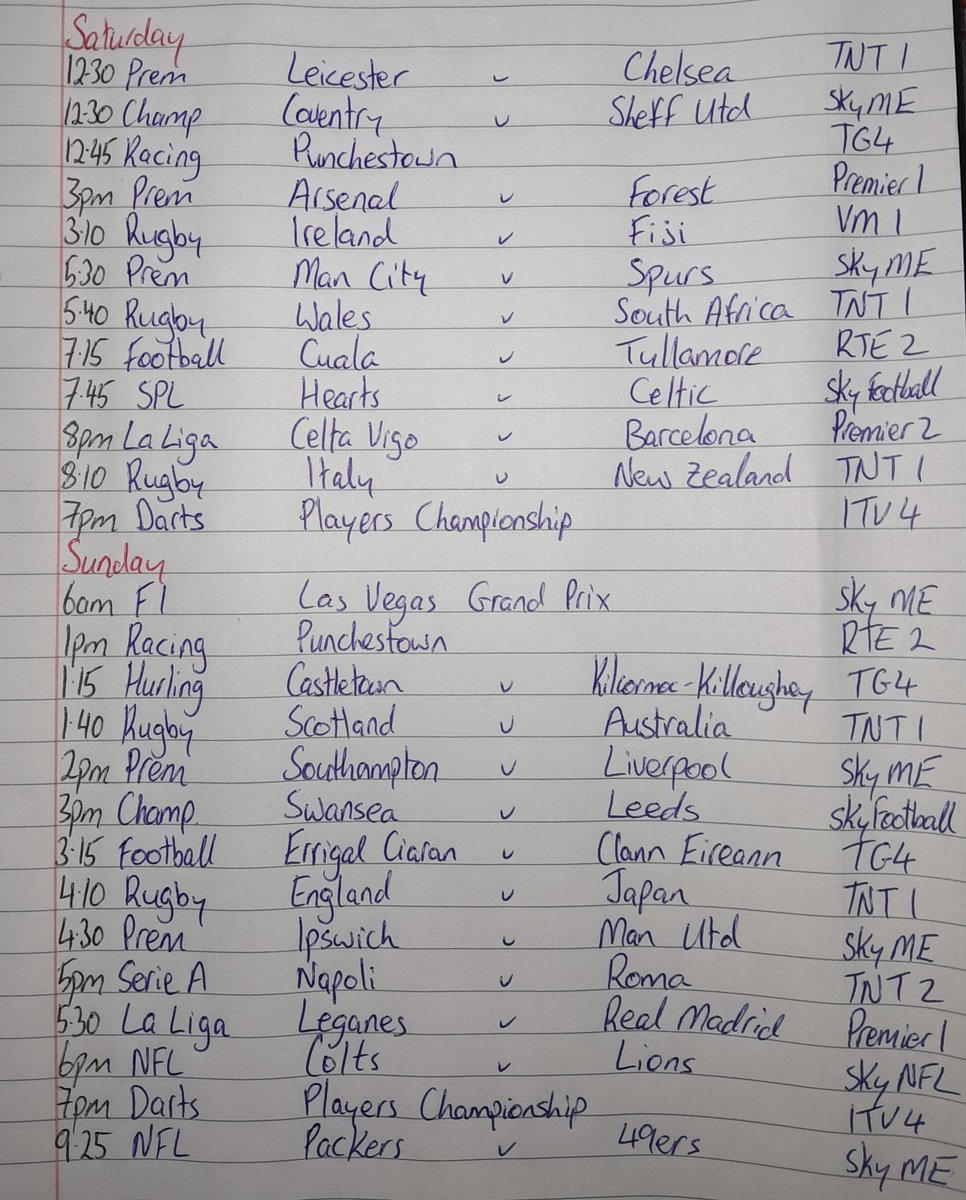 Saturday
12:30 Prem Leicester v Chelsea TNT 1
12:30 Champ Coventry v Sheff Utd Sky ME
12:45 Racing Punchestown TG4
3pm Prem Arsenal v Forest Premier 1
3:10 Rugby Ireland v Fiji VM 1
5:30 Prem Man City v Spurs Sky ME
5:40 Rugby Wales v South Africa TNT 1
7:15 Football Cuala v Tullamore RTE 2
7:45 SPL Hearts v Celtic Sky Football
8pm La Liga Celta Vigo v Barcelona Premier 2
8:10 Rugby Italy v New Zealand TNT 1
7pm Darts Players Championship ITV 4
Sunday
6am F1 Las Vegas Grand Prix Sky ME
1pm Racing Punchestown RTE 2
1:15 Hurling Castletown v Kilcormac-Killoughey TG4
1:40 Rugby Scotland v Australia TNT 1
2pm Prem Southampton v Liverpool Sky ME
3pm Champ Swansea v Leeds Sky Football
3:15 Football Errigal Ciaran v Clann Eireann TG4
4:10 Rugby England v Japan TNT 1
4:30 Prem Ipswich v Man Utd Sky ME
5pm Serie A Napoli v Roma TNT 2
5:30 La Liga Leganes v Real Madrid Premier 1
6pm NFL Colts v Lions Sky NFL
7pm Darts Players Championship ITV 4
9:25 NFL Packers v 49ers Sky ME